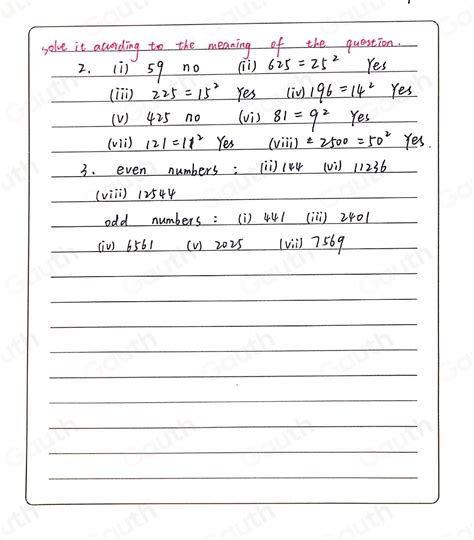 solve it acording to the meaning of the question.
2. (i) 59 no (ii) 625 = 25² Yes
(iii) 225 = 15² Yes (iv) 196 = 14² Yes
(v) 425 no (vi) 81 = 9² Yes
(vii) 121 = 11² Yes (viii) ± 2500 = 50² Yes.
3. even numbers : (ii) 144 (vi) 11236
(viii) 12544
odd numbers : (i) 441 (iii) 2401
(iv) 6561 (v) 2025 (vii) 7569